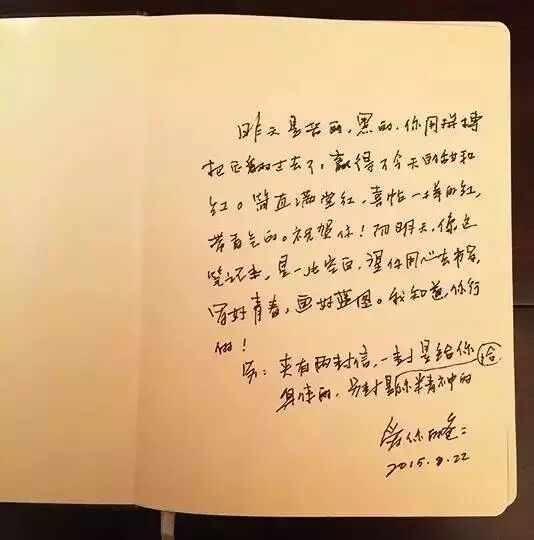 昨天是苦的，黑的，你用拼搏
把它翻过去了，赢得了今天的甜和
红。简直满堂红，喜帖一样的红，
带香气的。祝贺你！而明天，像这
笔记本，是一片空白，要你用心去书写，
写好青春，画好蓝图。我知道，你行
的！
另：夹有两封信，一封是给你
身体的，另封是给你精神的
爱你的爸：
2015.8.22